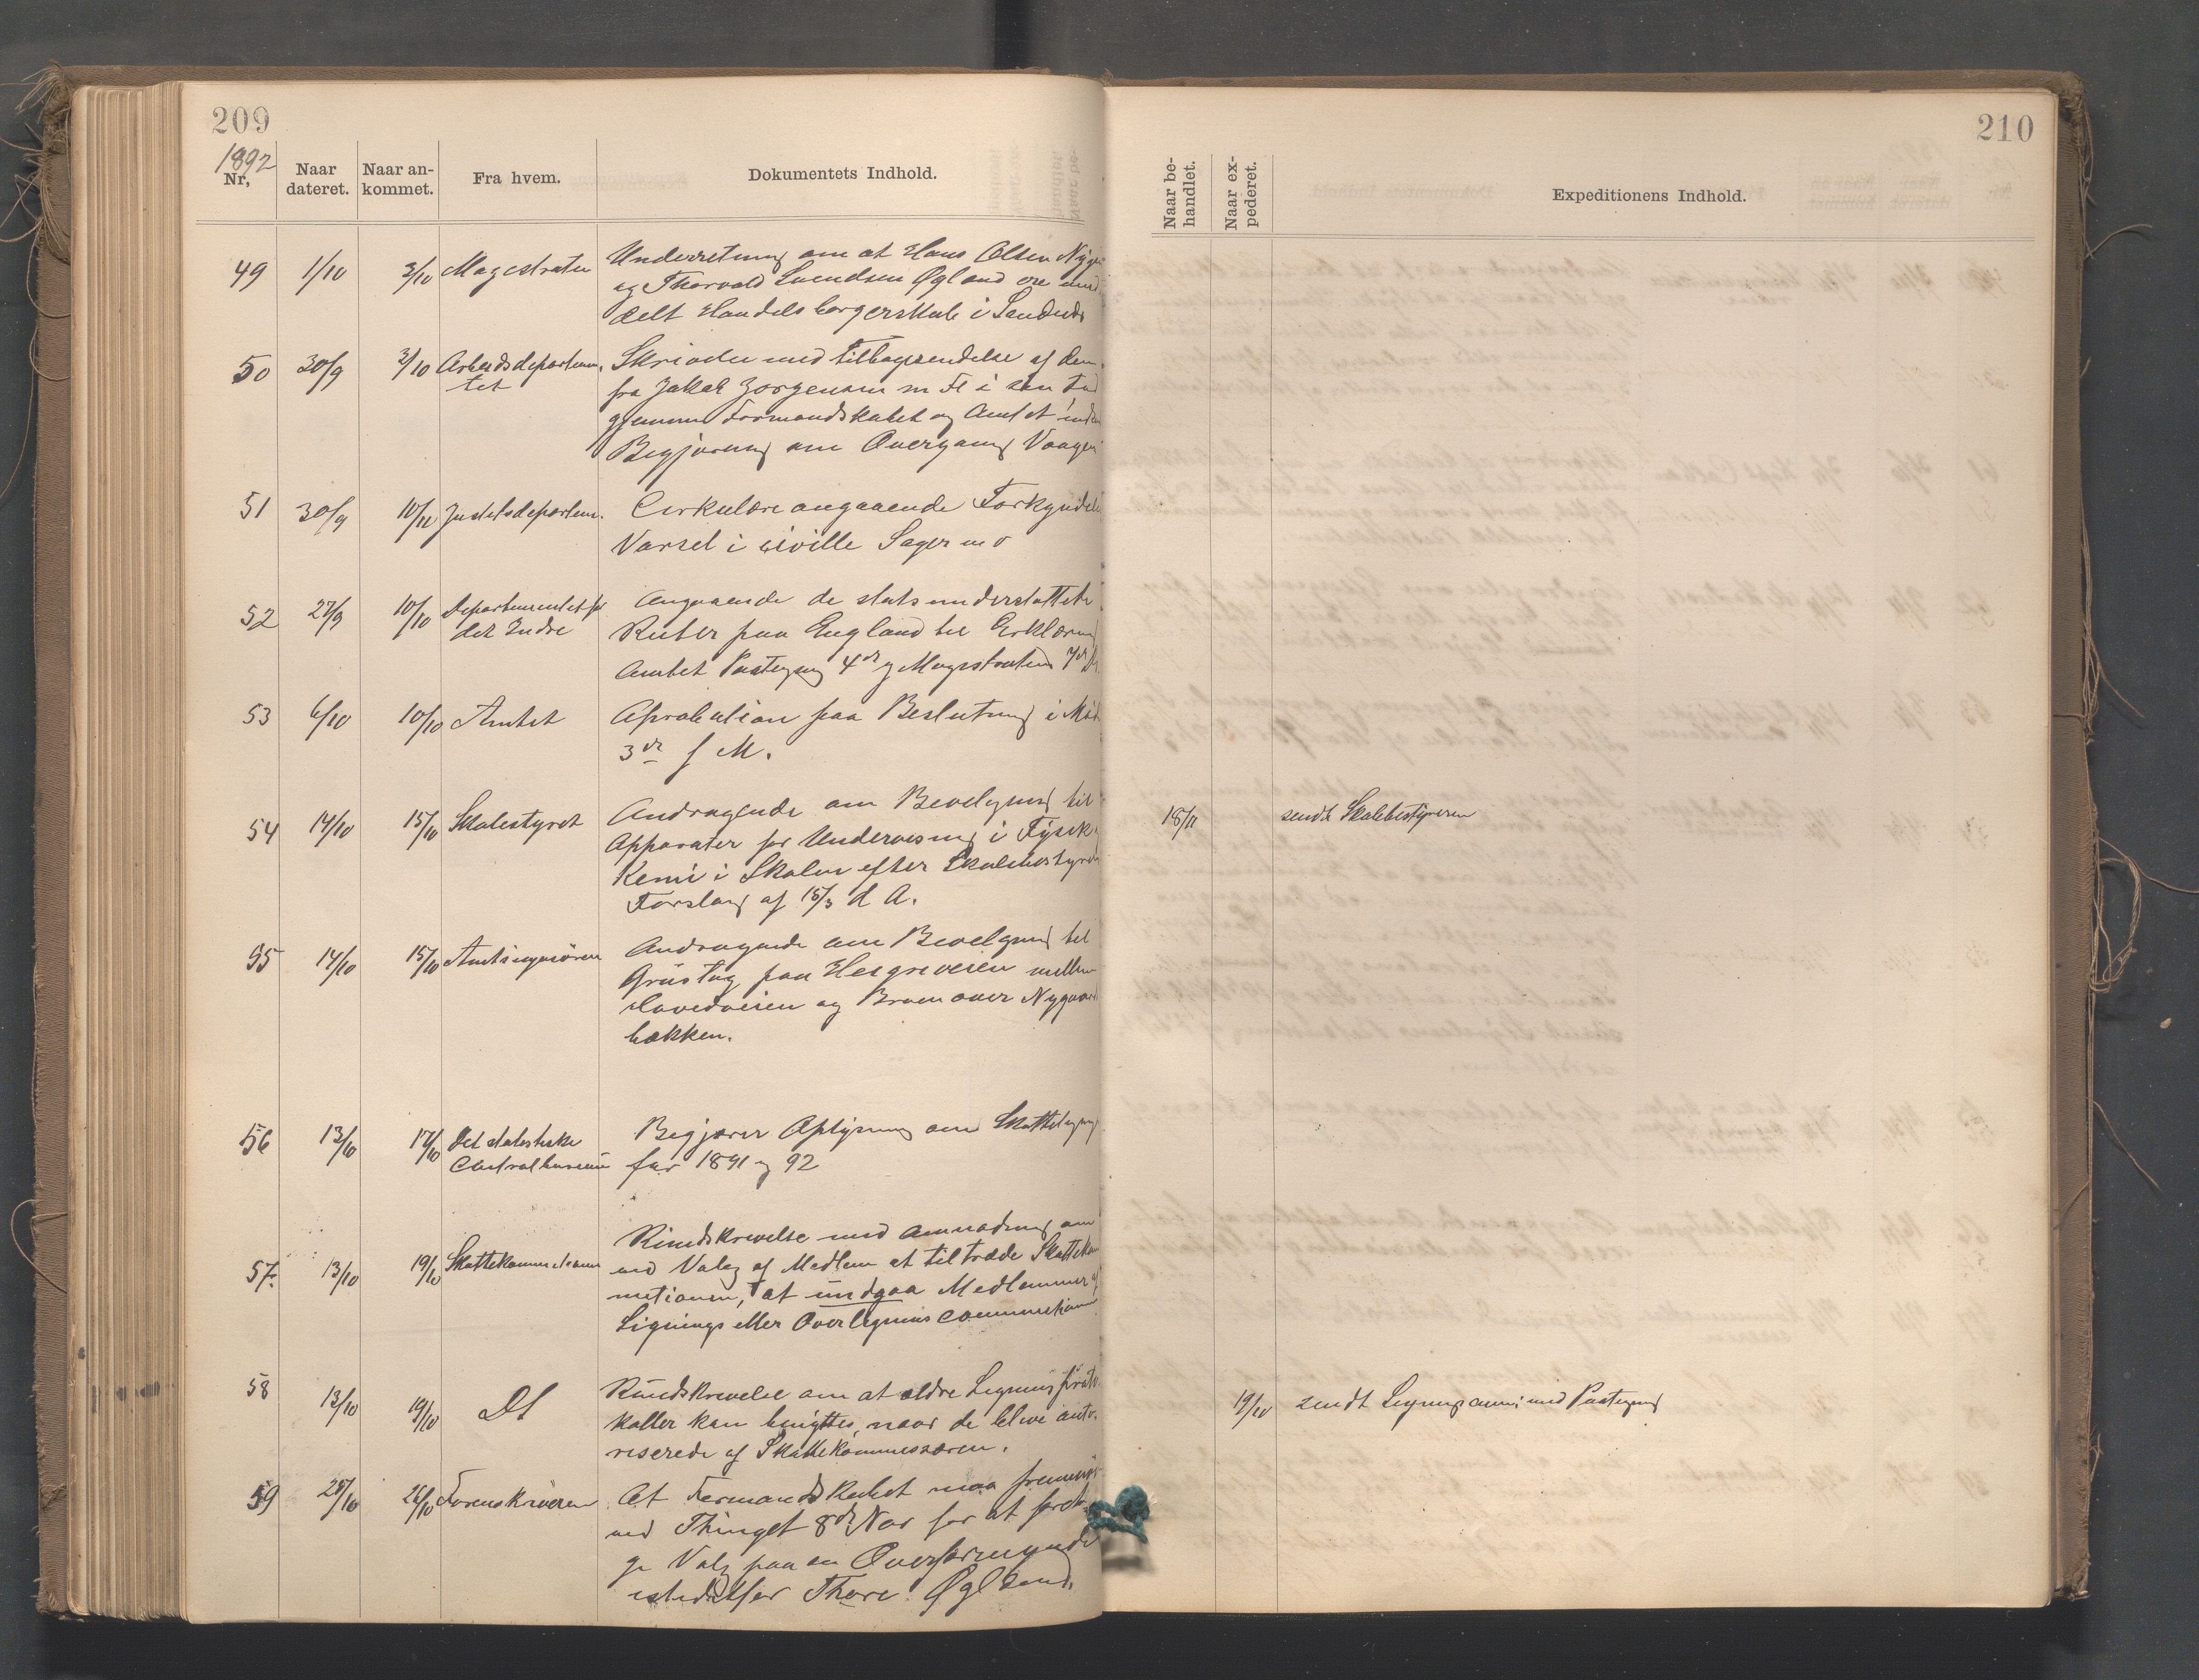 209
1892
Nr,
Naar dateret.
Naar ankommet.
Fra hvem.
Dokumentets Indhold.
49 1/10 3/10 Magistraten Underretning om at Hans Olsen
og Thorvald Svendsen Øgland ere med
delt Handelsborgerskab i Sandnes
50 30/9 3/10 Arbeidsdepartemen- Skrivelse med Tilbagesendelse af den
tet fra Jakob Jørgensen m Fl i sin Tid
gjennem Formandskabet og Amtet
Begjæring om Overgang
51 30/9 10/10 Justitsdepartem. Cirkulære angaaende Forkyndelse
Varsel i civille Sager m v
52 27/9 10/10 Departementet for Angaaende de statsunderstøttede
det Indre Ruter paa England til Erklæring
Amtet Paategning 4de og Magistratens 7de
53 6/10 10/10 Amtet Aprobation paa Beslutning i Mød
3de f M.
54 14/10 15/10 Skolestyret Andragende om Bevilgning til
Apparater for Undervisning i Fysik
Kemi i Skolen efter Skolebestyreren
Forslag af 15/3 d A.
55 14/10 15/10 Amtsingeniøren Andragende om Bevilgning til
Grustag paa mellem
Hovedveien og Broen over Nygaard
bækken.
56 13/10 17/10 Det statistiske Begjærer Oplysning om Skattelign
Centralbureau for 1891 og 92
57. 13/10 19/10 Rundskrivelse med Anmodning om
ved Valg af Medlem at tiltræde Skattekom
missionen, at undgaa Medlemmer af
Lignings eller Overlignings Commissionen
58 13/10 19/10 Ds Rundskrivelse om at ældre Ligningsproto-
koller kan benyttes, naar de blive auto-
riserede af Skattekommissæren.
59 25/10 26/10 Sorenskriveren At Formandskabet maa fremmøde
ved Thinget 8de Nov for at foreta-
ge Valg paa en Overformynder
istedetfor Thore Øgland.
210
Naar behandlet.
Naar expederet.
Expeditionens Indhold.
18/11 sendt Skolebestyreren
19/10 sendt Ligningscomi med Paategning